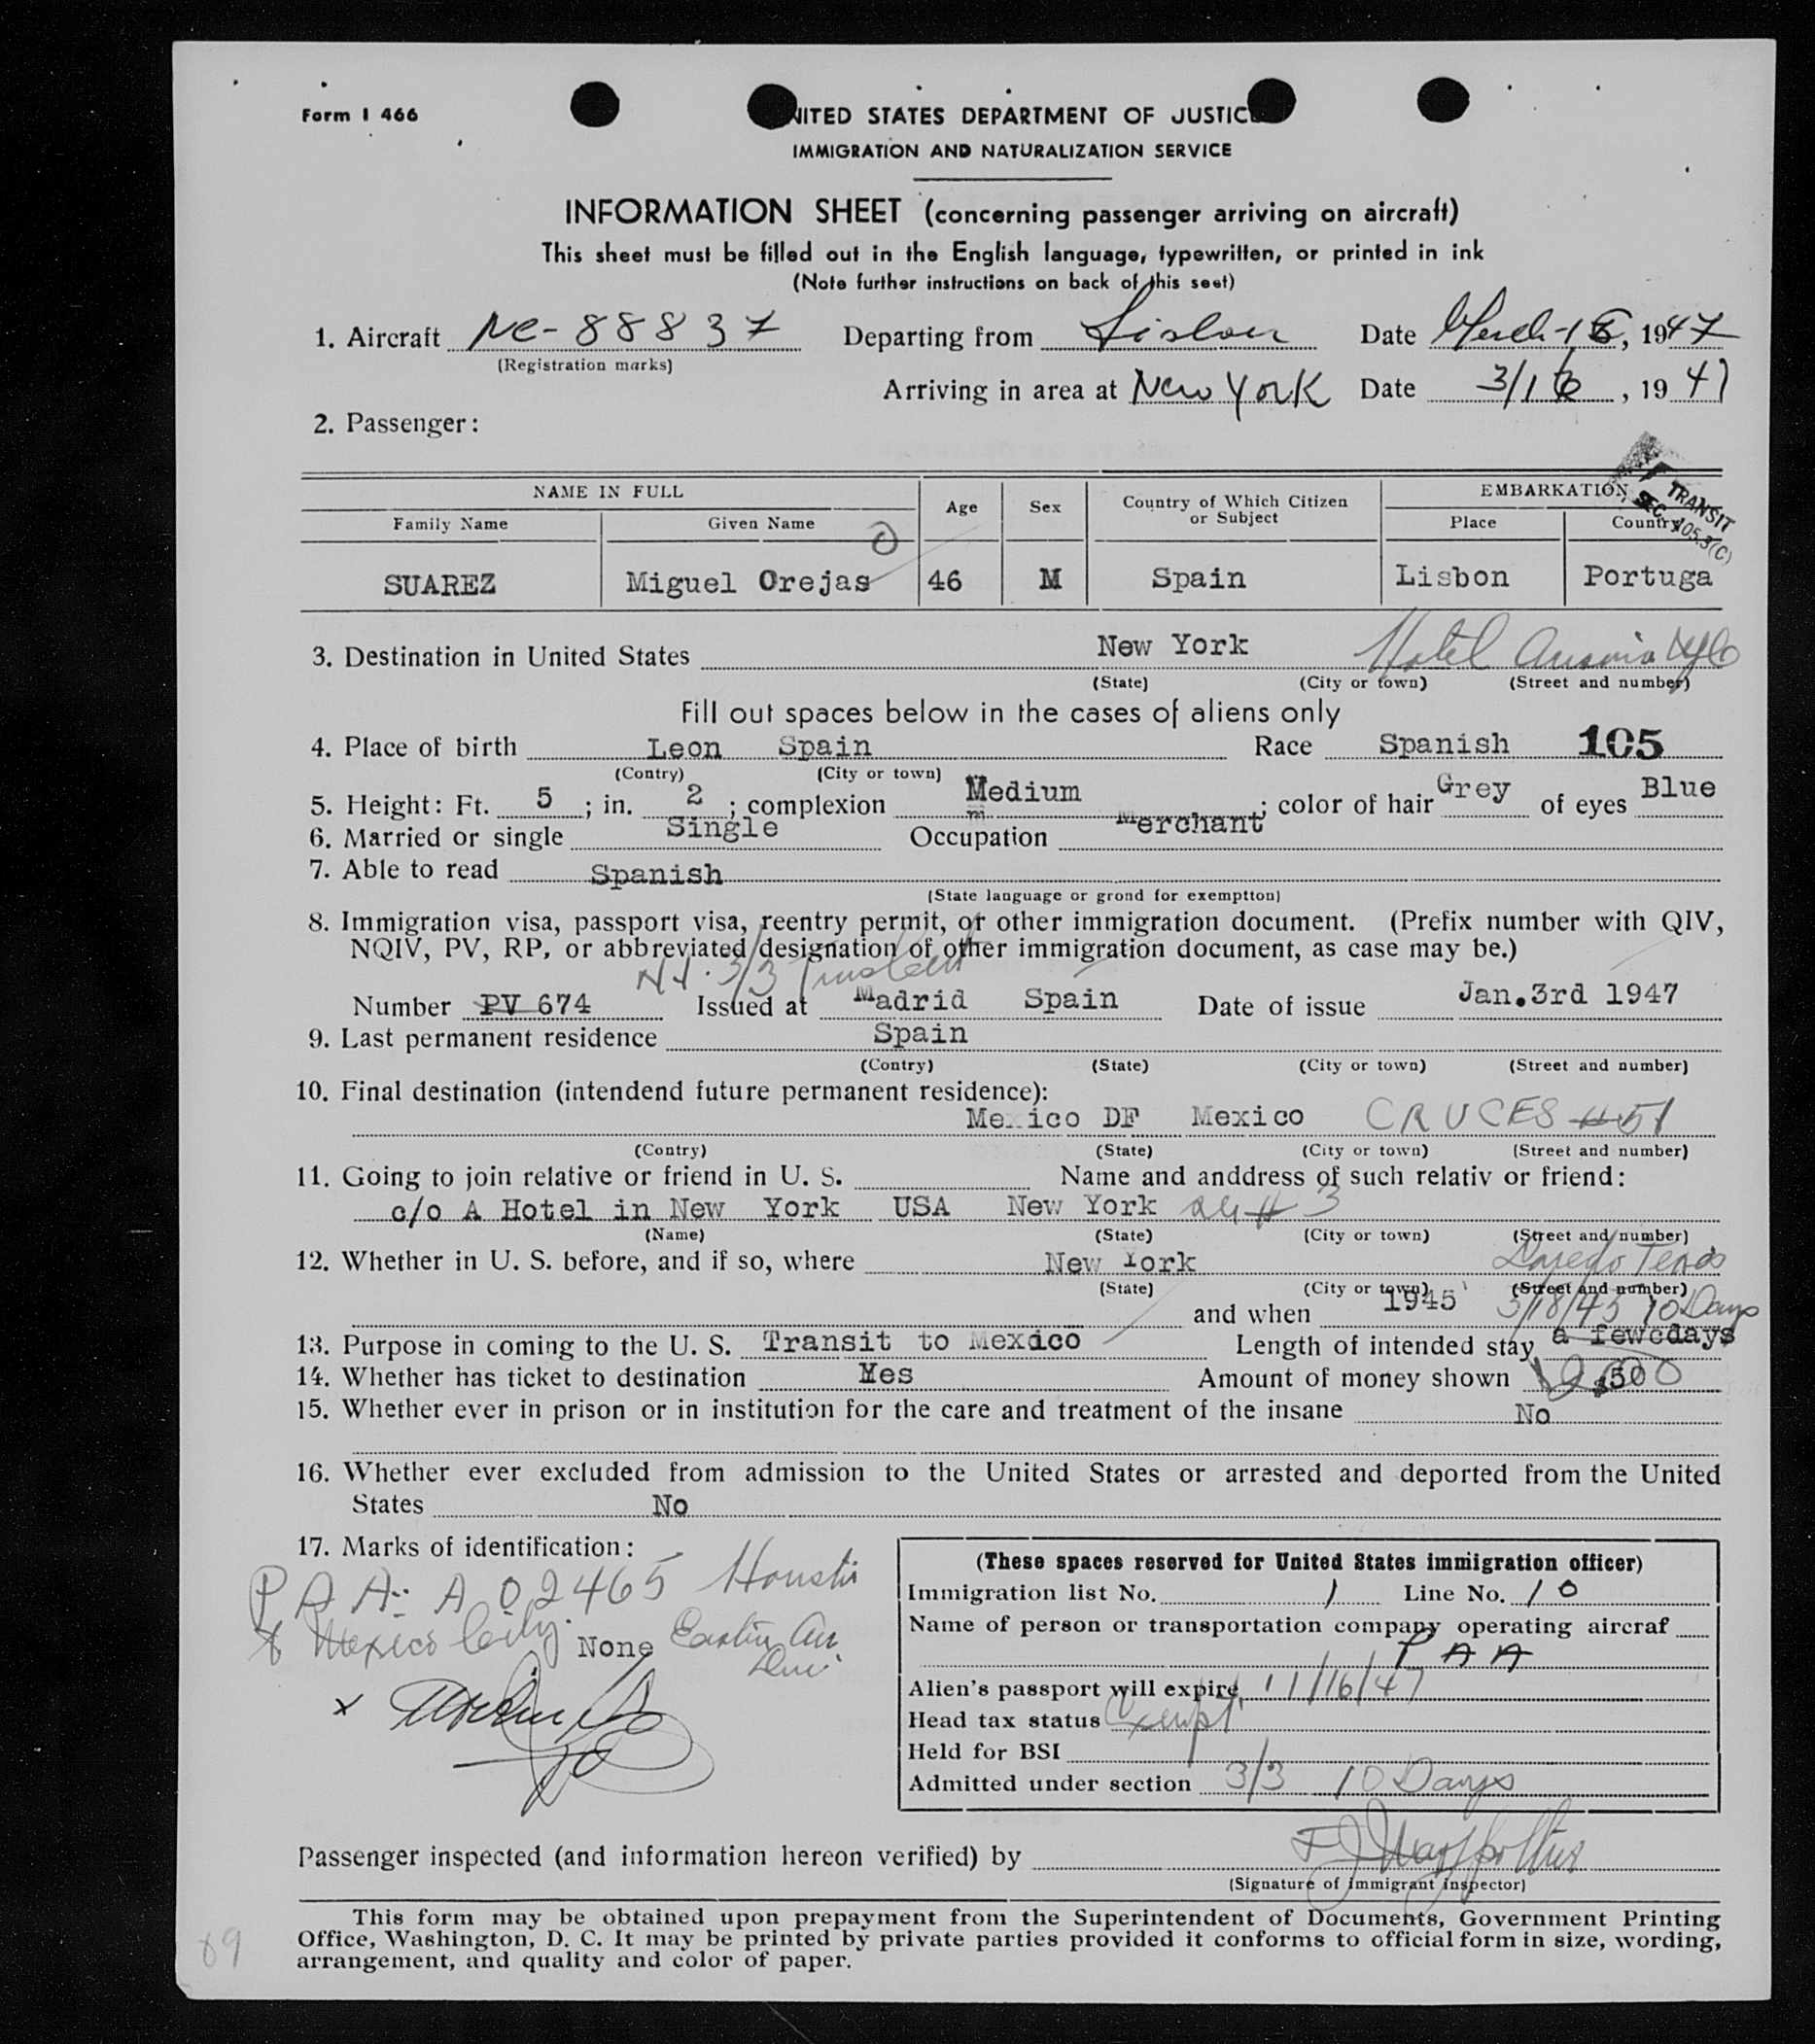 Form I 466
UNITED STATES DEPARTMENT OF JUSTICE
IMMIGRATION AND NATURALIZATION SERVICE
INFORMATION SHEET (concerning passenger arriving on aircraft)
This sheet must be filled out in the English language, typewritten, or printed in ink
(Note further instructions on back of this seet)
1. Aircraft NC-88837 Departing from Lisbon Date March-16, 1947
(Registration marks)
Arriving in area at New York Date 3/16, 1947
2. Passenger:
TRANSIT
SEC. 105.3(C)
NAME IN FULL Age Sex Country of Which Citizen or Subject EMBARKATION
Family Name Given Name Place Country
SUAREZ Miguel Orejas 46 M Spain Lisbon Portuga
3. Destination in United States New York Hotel NYC
(State) (City or town) (Street and number)
Fill out spaces below in the cases of aliens only
4. Place of birth Leon Spain Race Spanish 105
(Contry) (City or town)
5. Height: Ft. 5; in. 2; complexion Medium; color of hair Grey of eyes Blue
6. Married or single Single Occupation Merchant
7. Able to read Spanish
(State language or grond for exemptton)
8. Immigration visa, passport visa, reentry permit, or other immigration document. (Prefix number with QIV,
NQIV, PV, RP, or abbreviated designation of other immigration document, as case may be.)
3/3 Transit
Number PV 674 Issued at Madrid Spain Date of issue Jan.3rd 1947
9. Last permanent residence Spain
(Contry) (State) (City or town) (Street and number)
10. Final destination (intendend future permanent residence):
Mexico DF Mexico CRUCES #51
(Contry) (State) (City or town) (Street and number)
11. Going to join relative or friend in U. S. Name and anddress of such relativ or friend:
c/o A Hotel in New York USA New York # 3
(Name) (State) (City or town) (Street and number)
12. Whether in U. S. before, and if so, where New York Laredo Texas
(State) (City or town) (Street and number)
and when 1945 3/18/45 10 Days
13. Purpose in coming to the U. S. Transit to Mexico Length of intended stay a fewcdays
14. Whether has ticket to destination Yes Amount of money shown $50
15. Whether ever in prison or in institution for the care and treatment of the insane No
16. Whether ever excluded from admission to the United States or arrested and deported from the United
States No
17. Marks of identification:
PAA: A 02465 Houston
to Mexico City. None Eastern Air
x
(These spaces reserved for United States immigration officer)
Immigration list No. 1 Line No. 10
Name of person or transportation company operating aircraf
PAA
Alien's passport will expire 11/16/47
Head tax status Exempt
Held for BSI
Admitted under section 3/3 10 Days
Passenger inspected (and information hereon verified) by
(Signature of immigrant inspector)
This form may be obtained upon prepayment from the Superintendent of Documents, Government Printing
Office, Washington, D. C. It may be printed by private parties provided it conforms to official form in size, wording,
arrangement, and quality and color of paper.
89